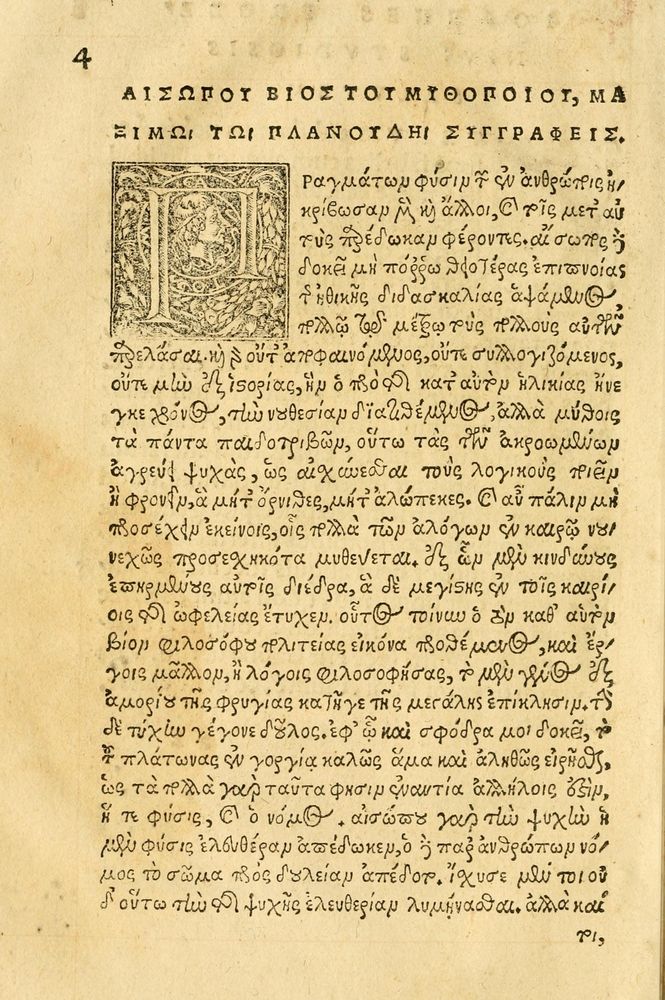 4
ΑΙΣΩΠΟΥ ΒΙΟΣ ΤΟΥ ΜΥΘΟΠΟΙΟΥ, ΜΑ
ΞΙΜΩι ΤΩι ΠΛΑΝΟΥΔΗι ΣΥΓΓΡΑΦΕΙΣ.
Πραγμάτων φύσιν τὴν ἐν ἀνθρώποις ἠ/
κρίβωσαν μὲν καὶ ἄλλοι, καὶ τοῖς μετ αὐ
τοὺς παρέδωκαν φέροντες. αἴσωπος δὲ
δοκεῖ μὴ πόρρω θειοτέρας ἐπιπνοίας
τῆς ἠθικῆς διδασκαλίας ἁψάμενος,
πολλῷ τῷ μέτρῳ τοὺς πολλοὺς αὐτῶν
παρελάσαι. καὶ γὰρ οὔτ ἀποφαινόμενος, οὔτε συλλογιζόμενος,
οὔτε μὴν ἐξ ἱστορίας, ἣν ὁ πρὸ τῆς κατ αὐτὸν ἡλικίας ἤνε
γκε χρόνος, τὴν νουθεσίαν διατιθέμενος, ἀλλὰ μύθοις
τὰ πάντα παιδοτριβῶν, οὕτω τὰς τῶν ἀκροωμένων
ἀγρεύει ψυχὰς, ὡς αἰσχύνεσθαι τοὺς λογικοὺς ποιεῖν
ἢ φρονεῖν, ἃ μήτ ὄρνιθες, μήτ ἀλώπεκες. καὶ αὖ πάλιν μὴ
προσέχειν ἐκείνοις, οἷς πολλὰ τῶν ἀλόγων ἐν καιρῷ νου
νεχῶς προσεσχηκότα μυθεύεται. ἐξ ὧν μὲν κινδύνους
ἐπηρμένους αὐτοῖς διέδρα, ἃ δὲ μεγίστης ἐν τοῖς καιρί/
οις τῆς ὠφελείας ἔτυχεν. οὗτος τοίνυν ὁ τὸν καθ αὑτὸν
βίον φιλοσόφου πολιτείας εἰκόνα προθέμενος, καὶ ἔρ/
γοις μᾶλλον, ἢ λόγοις φιλοσοφήσας, τὸ μὲν γένος ἐξ
ἀμορίου τῆς φρυγίας κατῆγε τῆς μεγάλης ἐπίκλησιν. τὴν
δὲ τύχην γέγονε δοῦλος. ἐφ ᾧ καὶ σφόδρα μοι δοκεῖ, τὸ
τοῦ πλάτωνος ἐν γοργίᾳ καλῶς ἅμα καὶ ἀληθῶς εἰρῆσθαι,
ὡς τὰ πολλὰ γὰρ ταῦτα φησὶν ἐναντία ἀλλήλοις ἐστὶν,
ἥ τε φύσις, καὶ ὁ νόμος. αἰσώπου γὰρ τὴν ψυχὴν ἡ
μὲν φύσις ἐλευθέραν ἀπέδωκεν, ὁ δὲ παρ ἀνθρώπων νό/
μος τὸ σῶμα πρὸς δουλείαν ἀπέδοτο. ἴσχυσε μέν τοι οὐ
δ οὕτω τὴν τῆς ψυχῆς ἐλευθερίαν λυμήνασθαι. ἀλλὰ καί
τοι,